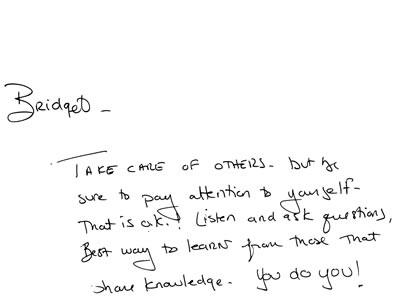 Bridget -
TAKE CARE OF OTHERS - but be
sure to pay attention to yourself -
That is o.k.! Listen and ask questions,
Best way to learn from those that
share knowledge. You do you!